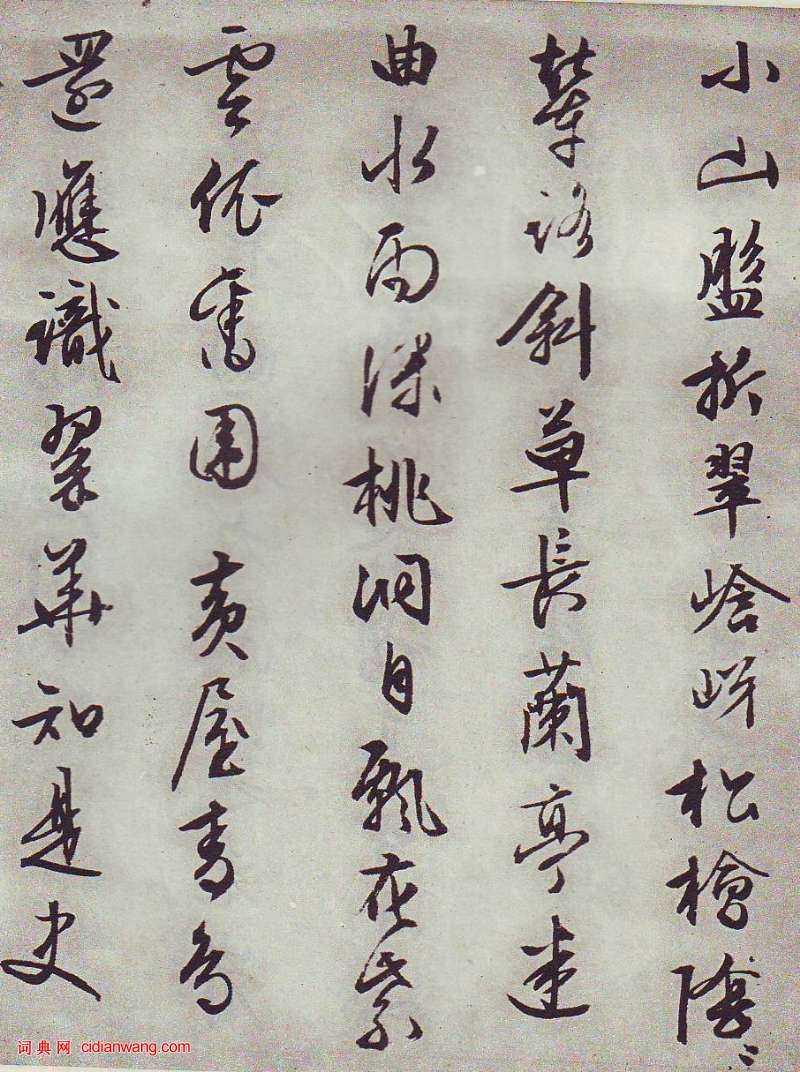 小山盤折翠㟏岈松檜陰〻
輦路斜草長蘭亭迷
曲水雨深桃洞月飄花紫
雲依舊圍黃屋青鳥
還應識翠華知是史
词典网 cidianwang.com